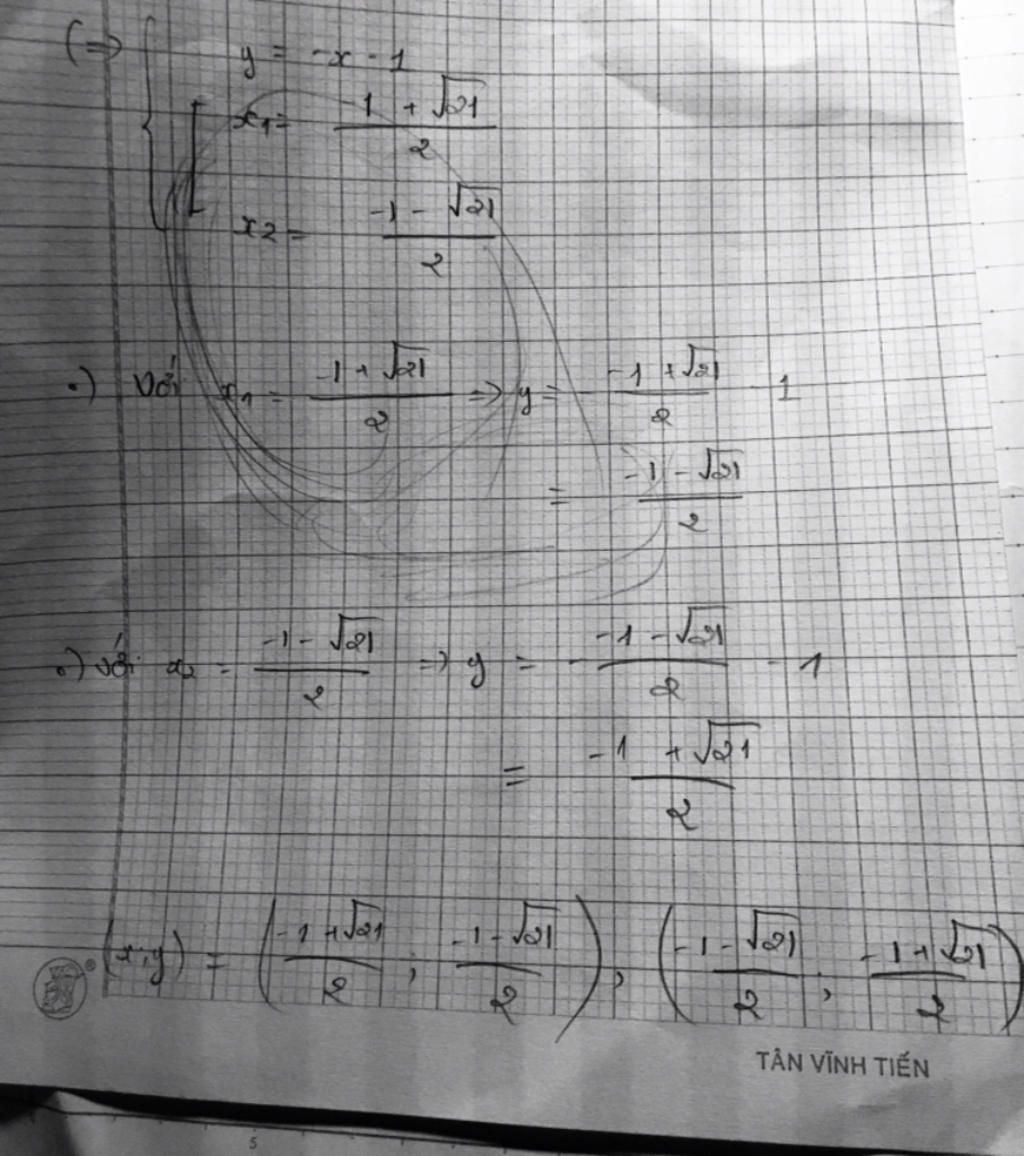 (=> { y = -x - 1
[ x1 = (-1 + √21)/2
x2 = (-1 - √21)/2
•) Với x1 = (-1 + √21)/2 => y = - (-1 + √21)/2 - 1
= (-1 - √21)/2
•) với x2 = (-1 - √21)/2 => y = - (-1 - √21)/2 - 1
= (-1 + √21)/2
(x;y) = ((-1 + √21)/2 ; (-1 - √21)/2), ((-1 - √21)/2 ; (-1 + √21)/2)
®
TÂN VĨNH TIẾN
5